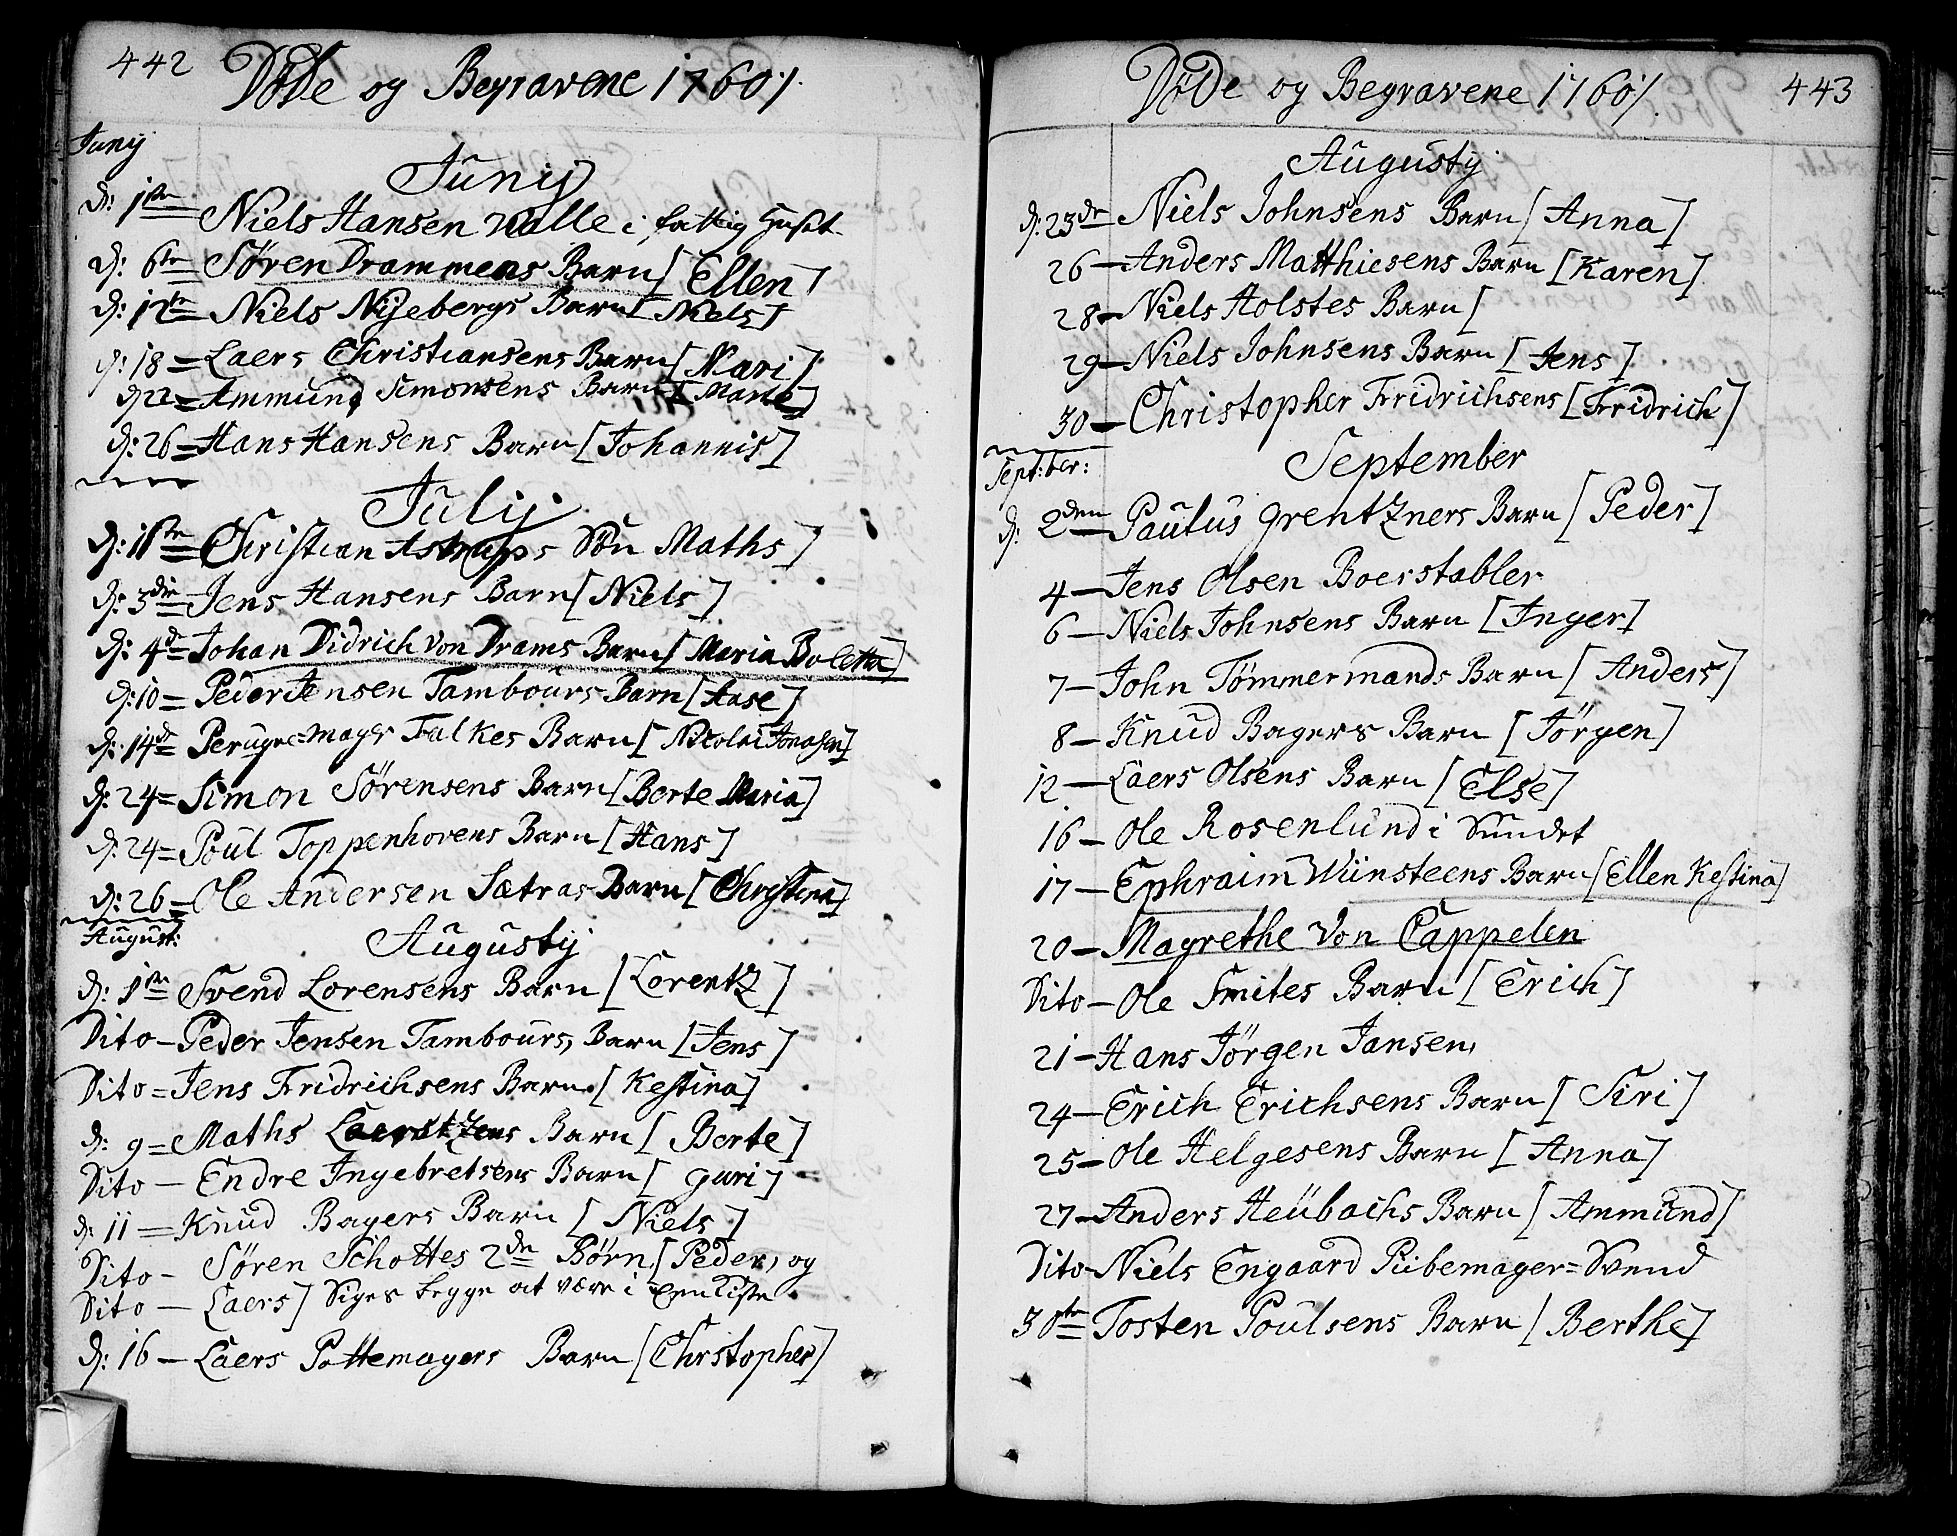 442 Døde og Begravene 1760 ⁒
Junij
Junij
d: 1ste Niels Hansen Nalle i fattig Huset
d: 6te Søren Drammens Barn [Ellen]
d: 12te Niels Nijebergs Barn [Niels]
d: 18 = Laers Christiansens Barn [Mari]
d 22 = Ammund Simonsens Barn [Marte]
d: 26 = Hans Hansens Barn [Johannis]
Julij
d: 1ste Christian Astrups Søn Maths]
d: 3die Jens Hansens Barn [Niels]
d: 4d = Johan Didrich Von Drams Barn [Maria Boletta]
d: 10 = Peder Jensen Tambours Barn [Aase]
d: 14d = Peruqvemager Falkes Barn [Nicolai Jonasen]
d: 24 = Simon Sørensens Barn [Berte Maria]
d: 24 = Poul Toppenhovens Barn [Hans]
d: 26 = Ole Andersen Sætras Barn [Christina]
August:
Augustij
d: 1ste Svend Lorensens Barn [Lorentz]
Dito - Peder Jensen Tambours, Barn [Jens]
Dito = Jens Fridrichsens Barn [Kestina]
d: 9 = Maths Barn [Berte]
Dito - Endre Ingebretsens Barn [Guri]
d: 11 = Knud Bagers Barn [Niels]
Dito - Søren Schottes 2de Børn [Peder, og
Dito - Laers] Siges begge at være i Een Kiste
d: 16 - Laers Pottemagers Barn [Christopher]
Døde og Begravene 1760 ⁒ 443
Augustij
d: 23de Niels Johnsens Barn [Anna]
26 - Anders Matthiesens Barn [Karen]
28 - Niels Holstes Barn [
29 - Niels Johnsens Barn [Jens]
30 - Christopher Fridrichsens [Fridrich]
Sept:ber:
September
d: 2den Paulus Grentzners Barn [Peder]
4 - Jens Olsen Boerstabler
6 - Niels Johnsens Barn [Inger]
7 - John Tømmermands Barn [Anders]
8 - Knud Bagers Barn [Jörgen]
12 - Laers Olsens Barn [Else]
16 - Ole Rosenlund i Sundet
17 - Ephraim Wünsteens Barn [Ellen Kestina]
20 - Magrethe Von Cappelen
Dito - Ole Smites Barn [Erich]
21 - Hans Jörgen Jansen,
24 - Erich Erichsens Barn [Siri]
25 - Ole Helgesens Barn [Anna]
27 - Anders Heübachs Barn [Ammund]
Dito - Niels Engaard Piibemager = Svend
30te Tosten Poulsens Barn [Berthe]